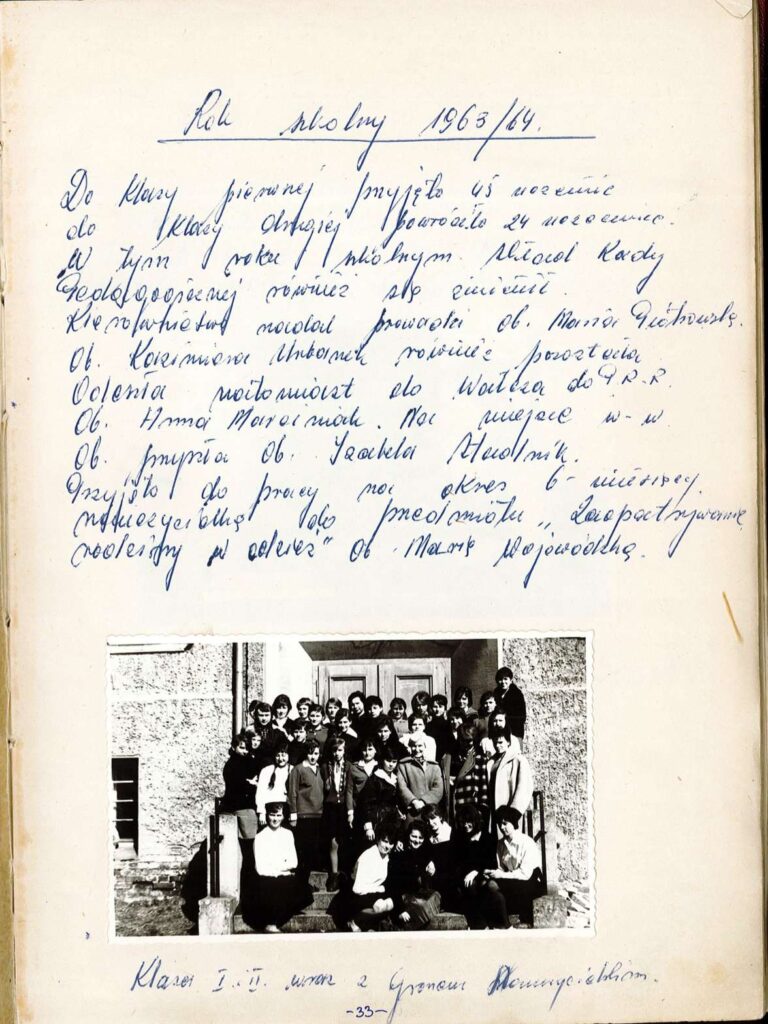 Rok szkolny 1963/64.
Do klasy pierwszej przyjęto 45 uczennic
do klasy drugiej powróciło 24 uczennice.
W tym roku szkolnym skład Rady
Pedagogicznej również się zmienił.
Kierownictwo nadal prowadzi ob. Maria Piotrowska.
Ob. Kazimiera Urbanek również pozostała
Odeszła natomiast do Wałcza do P.R.R.
Ob. Anna Marciniak. Na miejsce w-w
Ob. przyszła Ob. Izabela
Przyjęto do pracy na okres 6-miesięcy
nauczycielkę do przedmiotu „Zaopatrywanie
rodziny w odzież" Ob. Marię Wojewódzką.
Klasa I i II wraz z Gronem Nauczycielskim.
-33-